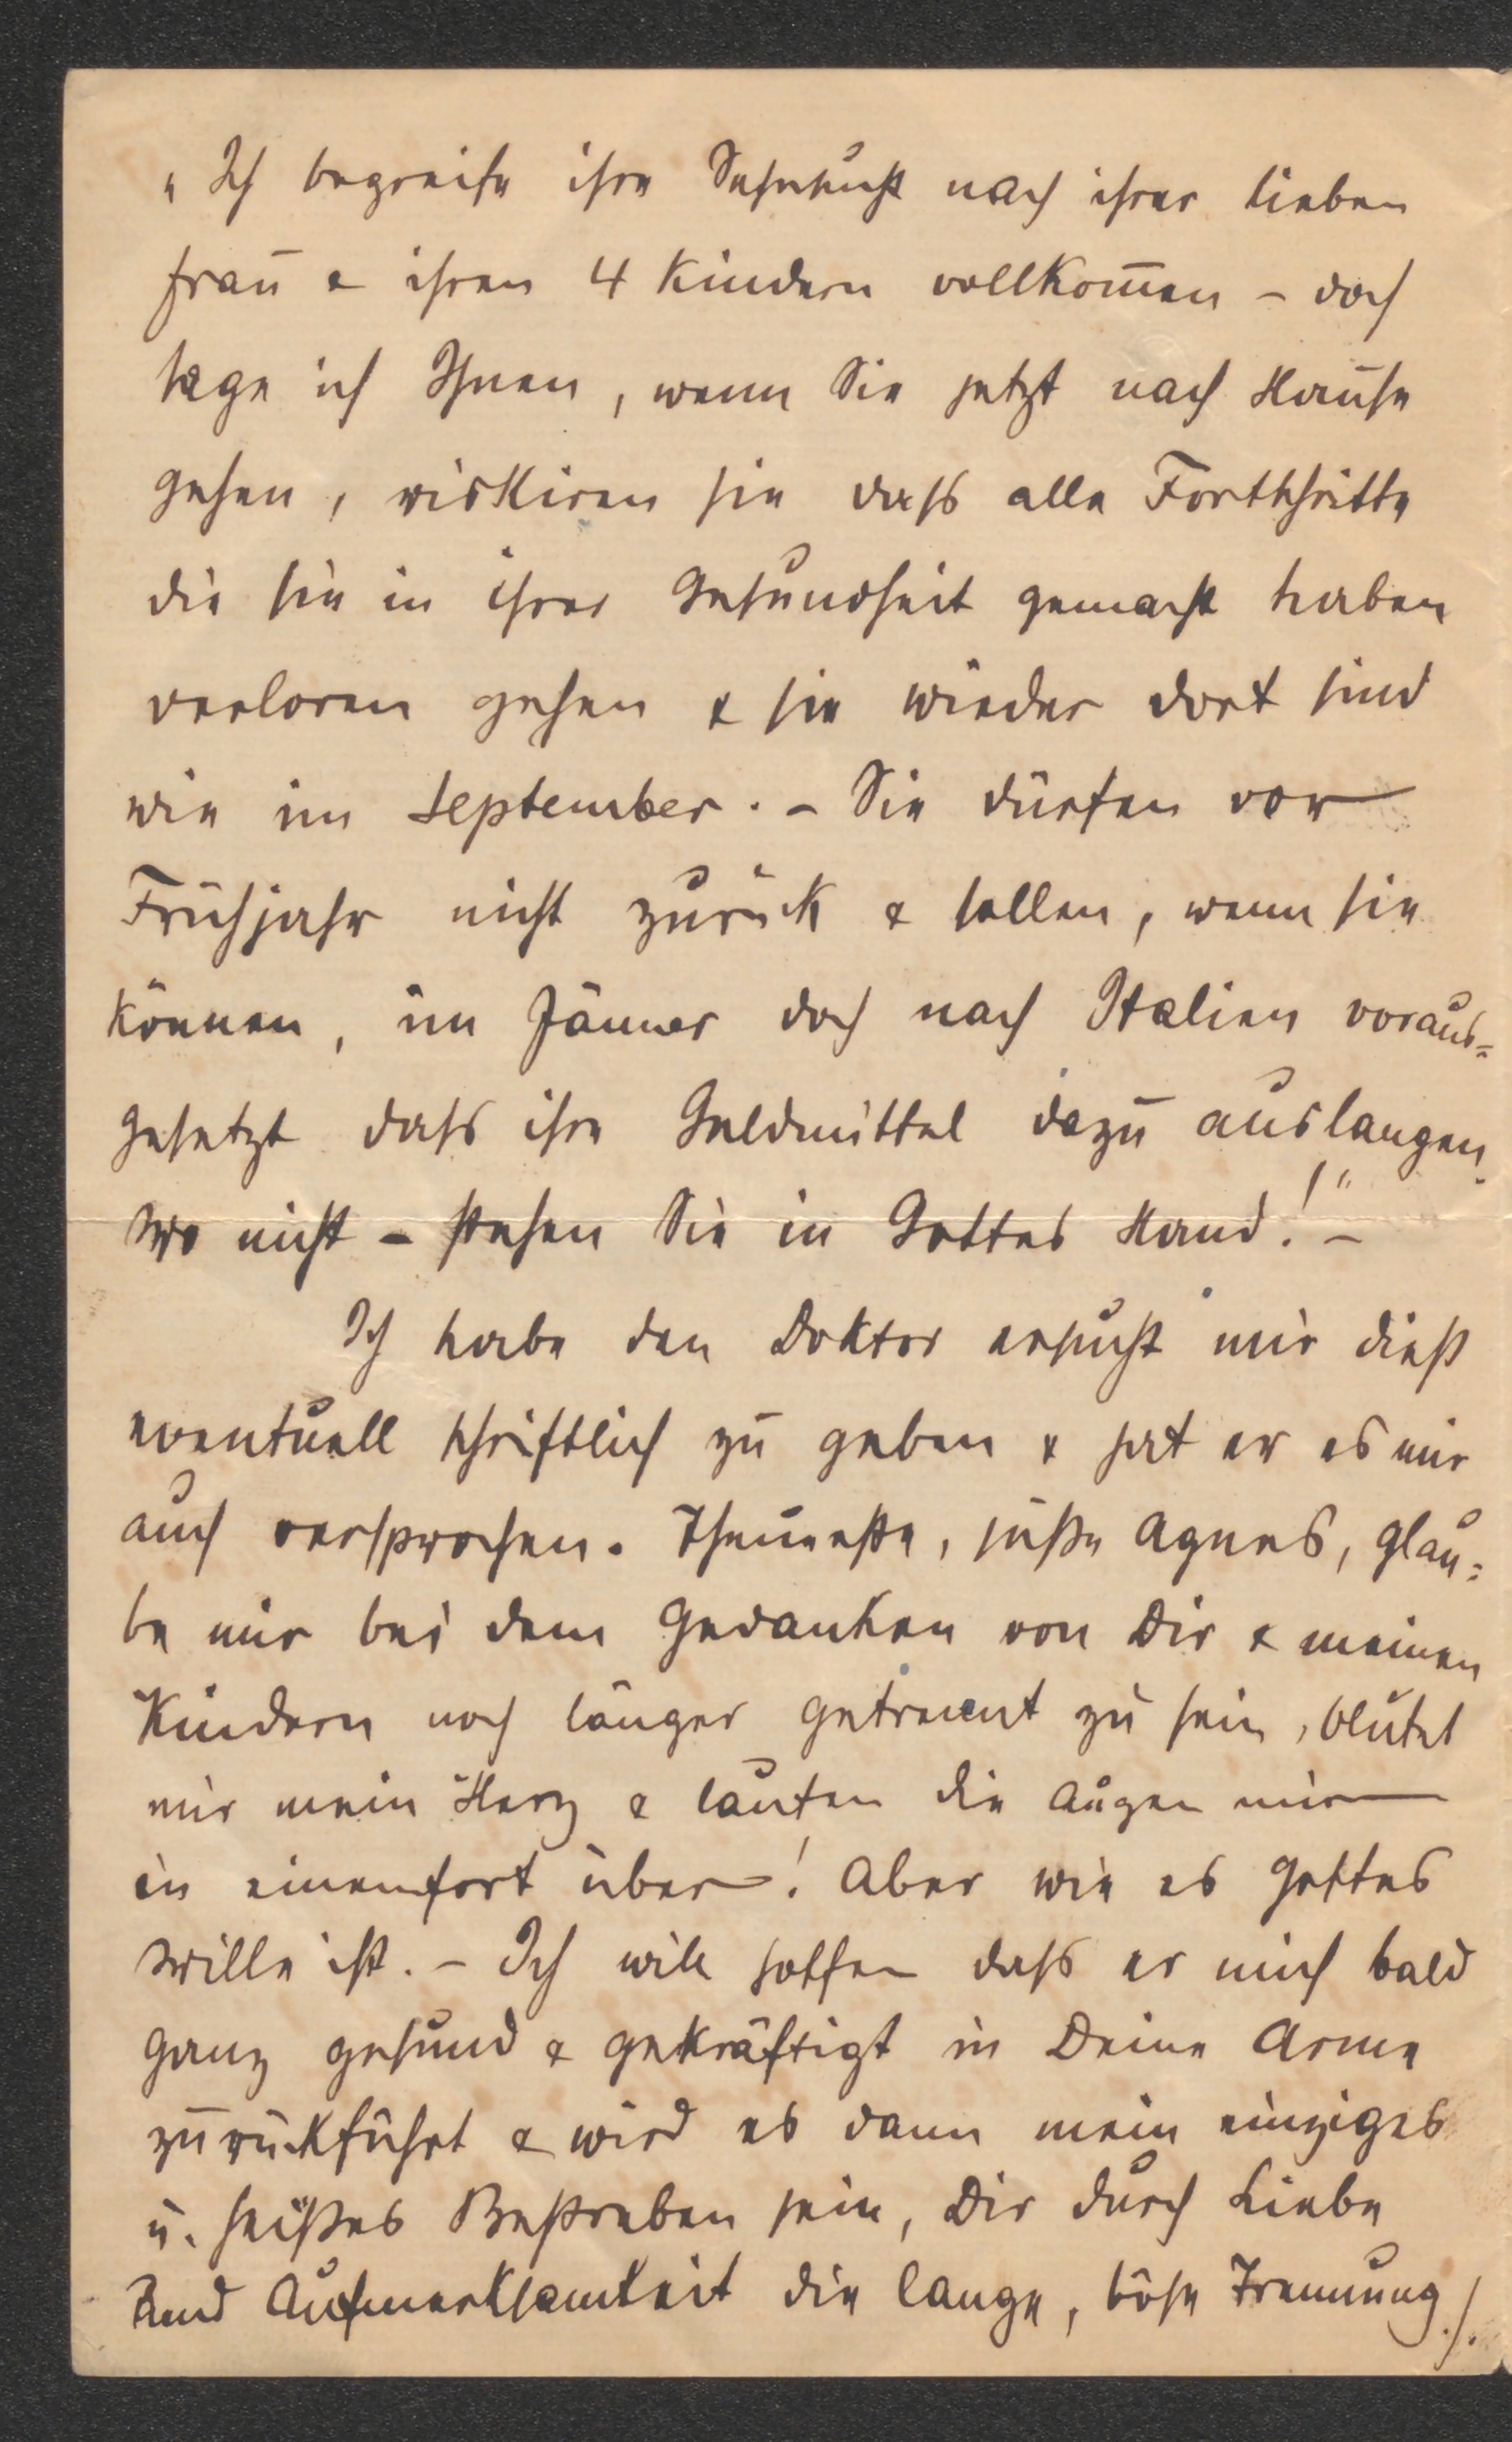 „Ich begreife ihre Sehnsucht nach ihrer lieben
Frau & ihren 4 Kindern vollkom̅en – doch
sage ich Ihnen, wenn Sie jetzt nach Hause
gehen, riskiren sie dass alle Fortschritte
die sie in ihrer Gesundheit gemacht haben
verloren gehen & sie wieder dort sind
wie im September. – Sie dürfen vor
Frühjahr nicht zurück & sollen, wenn sie
können, im Jänner doch nach Italien voraus=
gesetzt dass ihre Geldmittel dazu auslangen.
Wo nicht – stehen Sie in Gottes Hand!“ –
Ich habe den Doktor ersucht mir dieß
eventuell schriftlich zu geben & hat er es mir
auch versprochen. Theuerste, süße Agnes, glau=
be mir bei dem Gedanken von Dir & meinen
Kindern noch länger getrennt zu sein, blutet
mir mein Herz & laufen die Augen mir
in einemfort über! Aber wie es Gottes
Wille ist. – Ich will hoffen dass er mich bald
ganz gesund & gekräftigt in Deine Arme
zurückführt & wird es dann mein einziges
u. heißes Bestreben sein, Dir durch Liebe
und Aufmerksamkeit die lange, böse Trennung ./.